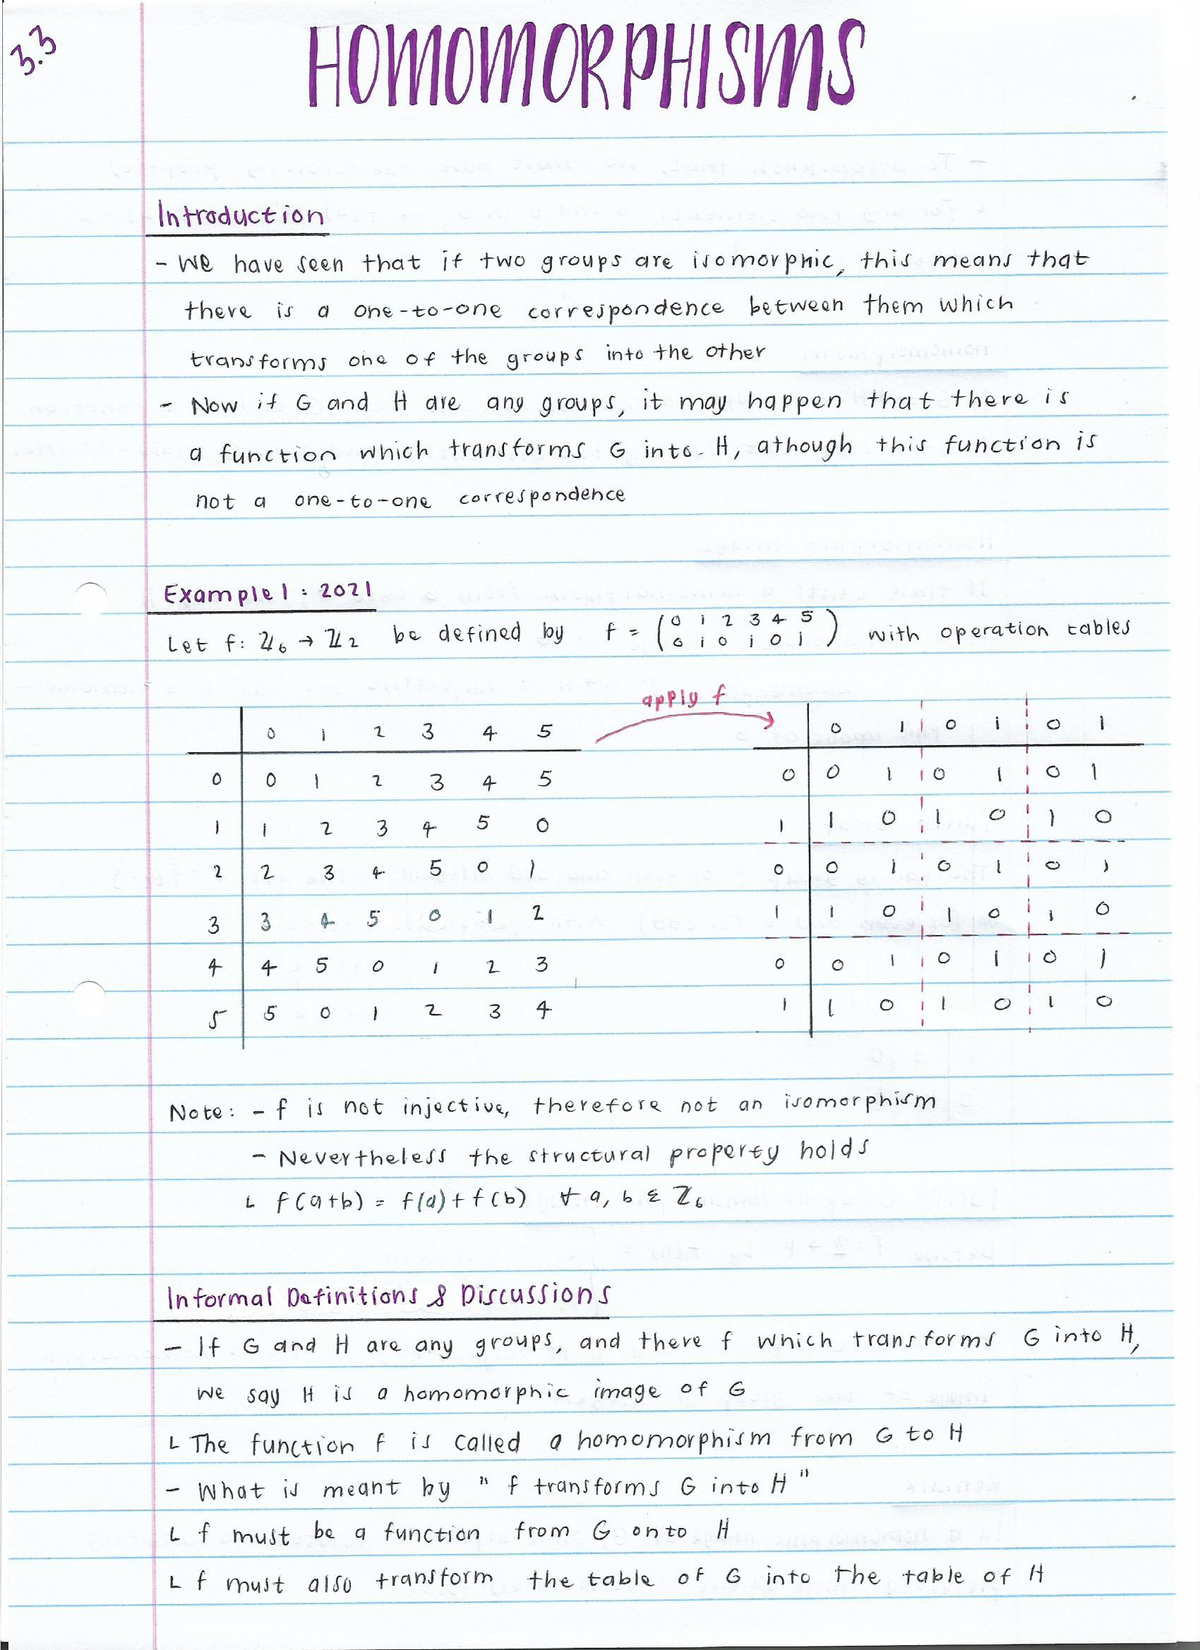 3.3
HOMOMORPHISMS
Introduction
- We have seen that if two groups are isomorphic, this means that
there is a one-to-one correspondence between them which
transforms one of the groups into the other
- Now if G and H are any groups, it may happen that there is
a function which transforms G into H, athough this function is
not a one-to-one correspondence
Example 1 : 2021
Let f: ℤ6 → ℤ2 be defined by f = (0 1 2 3 4 5
0 1 0 1 0 1) with operation tables
apply f
0 1 2 3 4 5
0 0 1 2 3 4 5
1 1 2 3 4 5 0
2 2 3 4 5 0 1
3 3 4 5 0 1 2
4 4 5 0 1 2 3
5 5 0 1 2 3 4
0 1 0 1 0 1
0 0 1 0 1 0 1
1 1 0 1 0 1 0
0 0 1 0 1 0 1
1 1 0 1 0 1 0
0 0 1 0 1 0 1
1 1 0 1 0 1 0
Note: - f is not injective, therefore not an isomorphism
- Nevertheless the structural property holds
L f(a+b) = f(a) + f(b) ∀ a, b ε ℤ6
Informal Definitions & Discussions
- If G and H are any groups, and there f which transforms G into H,
we say H is a homomorphic image of G
L The function f is called a homomorphism from G to H
- What is meant by " f transforms G into H "
L f must be a function from G onto H
L f must also transform the table of G into the table of H